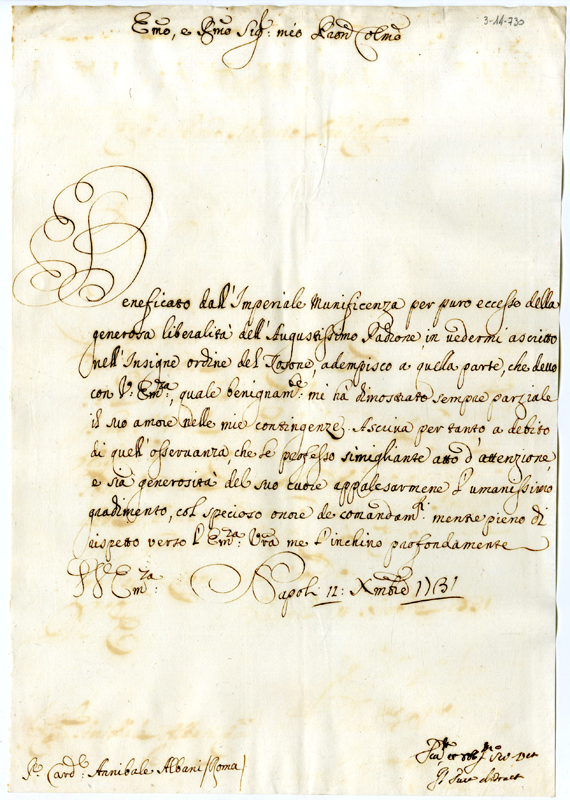 3-14-730
Emo, e Rmo Sig: mio Pron Colmo
Beneficato dall'Imperiale Munificenza per puro eccesso della
generosa liberalità dell'Augustissimo Padrone, in uedermi ascritto
nell'Insigne ordine del Tosone, adempisco a quella parte, che deuo
con V: Emza, quale benignamte: mi hà dimostrato sempre parziale
il suo amore nelle mie contingenze. Ascriua per tanto a debito
di quell'osseruanza, che le professo simigliante atto d'attenzione,
e sia generosità del suo cuore appalesarmene l'umanissimo
gradimento, col specioso onore de comandamti: mentre pieno di
rispetto verso l'Emza: Vra me l'inchino profondamente
Emza: Napoli 12: Xmbre 1731
Sr Cardle Annibale Albani (Roma)